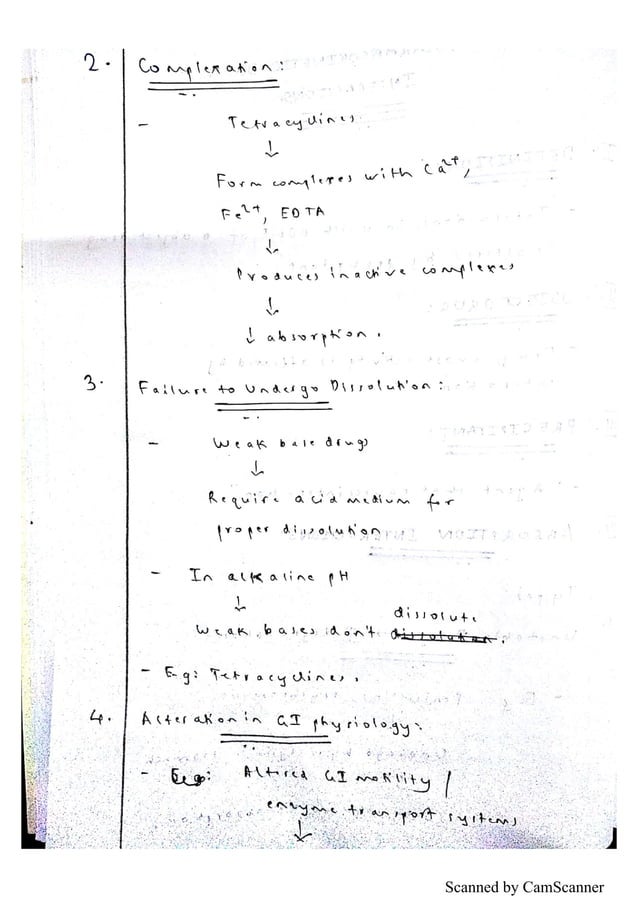 2. Complexation:
- Tetracyclines.
↓
Form complexes with Ca2+,
Fe2+, EDTA
↓
Produces inactive complexes
↓
↓ absorption.
3. Failure to Undergo Dissolution:
- Weak base drugs
↓
Require acid medium for
proper dissolution
- In alkaline pH
↓
dissolute
Weak bases don't dissolution.
- Eg: Tetracyclines.
4. Alteration in GI physiology:
- Eg: Altired GI motility /
enzyme transport systems
↓
Scanned by CamScanner